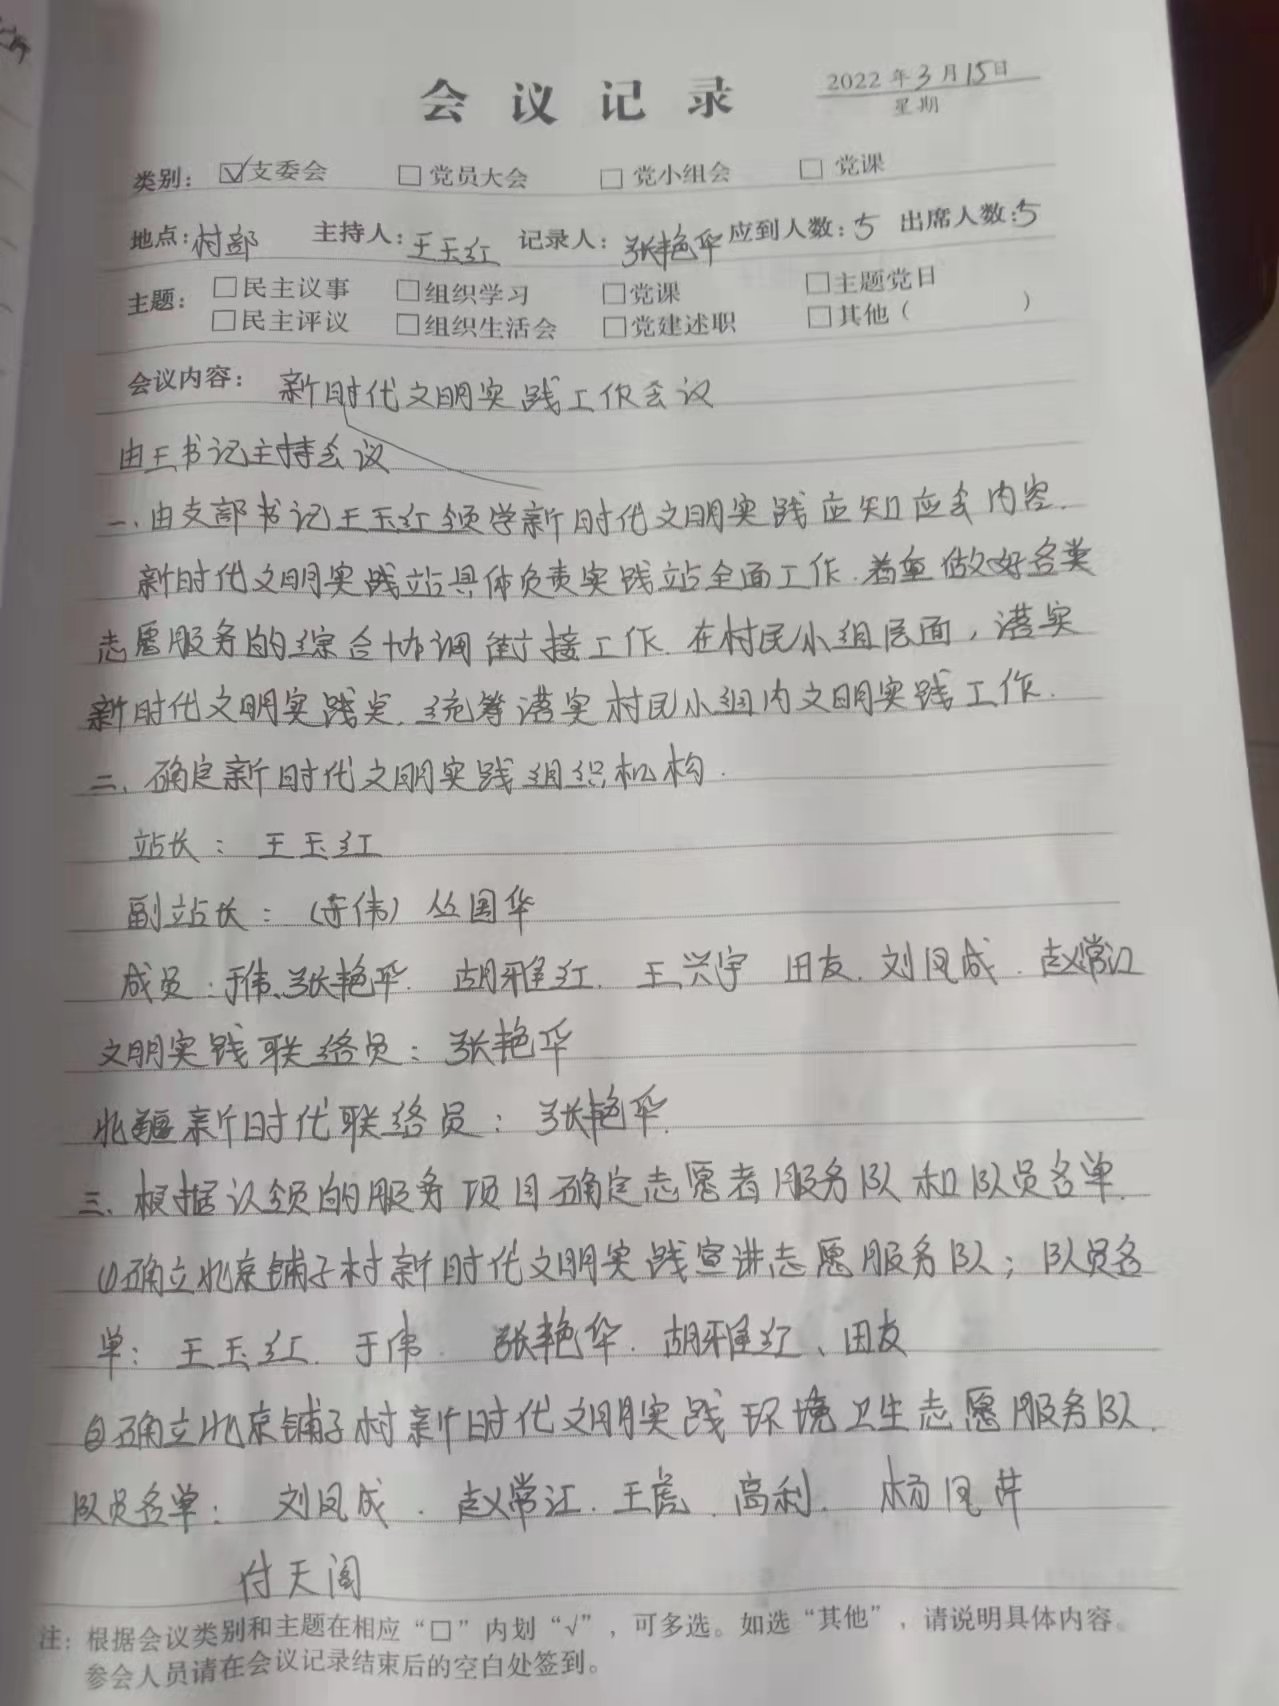 会议记录
2022年3月15日
星期
类别：☑支委会 □党员大会 □党小组会 □党课
地点：村部 主持人：王玉红 记录人：张艳华 应到人数：5 出席人数：5
主题：□民主议事 □组织学习 □党课 □主题党日
□民主评议 □组织生活会 □党建述职 □其他（ ）
会议内容：新时代文明实践工作会议
由王书记主持会议
一、由支部书记王玉红领学新时代文明实践应知应会内容.
新时代文明实践站具体负责实践站全面工作.着重做好各类
志愿服务的综合协调衔接工作.在村民小组层面，落实
新时代文明实践点.统筹落实村民小组内文明实践工作.
二、确定新时代文明实践组织机构.
站长：王玉红
副站长：（于伟）丛国华
成员：于伟、张艳华. 胡雅红. 王兴宇 田友. 刘凤成. 赵常江
文明实践联络员：张艳华
北疆新时代联络员：张艳华.
三、根据认领的服务项目确定志愿者服务队和队员名单.
⑴确立北京铺子村新时代文明实践宣讲志愿服务队；队员名
单：王玉红. 于伟. 张艳华. 胡雅红、田友
②确立北京铺子村新时代文明实践环境卫生志愿服务队.
队员名单：刘凤成. 赵常江. 王虎. 高利. 杨凤芹
付天阁
注：根据会议类别和主题在相应“□”内划“√”，可多选。如选“其他”，请说明具体内容。
参会人员请在会议记录结束后的空白处签到。